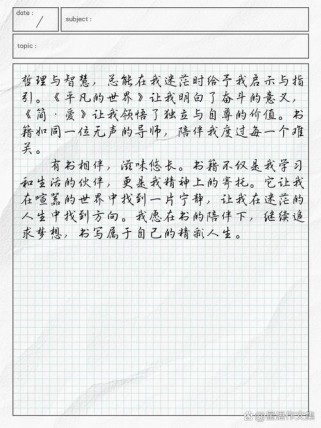 date :
subject :
topic :
哲理与智慧，总能在我迷茫时给予我启示与指
引。《平凡的世界》让我明白了奋斗的意义，
《简·爱》让我领悟了独立与自尊的价值。书
籍如同一位无声的导师，陪伴我度过每一个难
关。
有书相伴，滋味悠长。书籍不仅是我学习
和生活的伙伴，更是我精神上的寄托。它让我
在喧嚣的世界中找到一片宁静，让我在迷茫的
人生中找到方向。我愿在书的陪伴下，继续追
求梦想，书写属于自己的精彩人生。